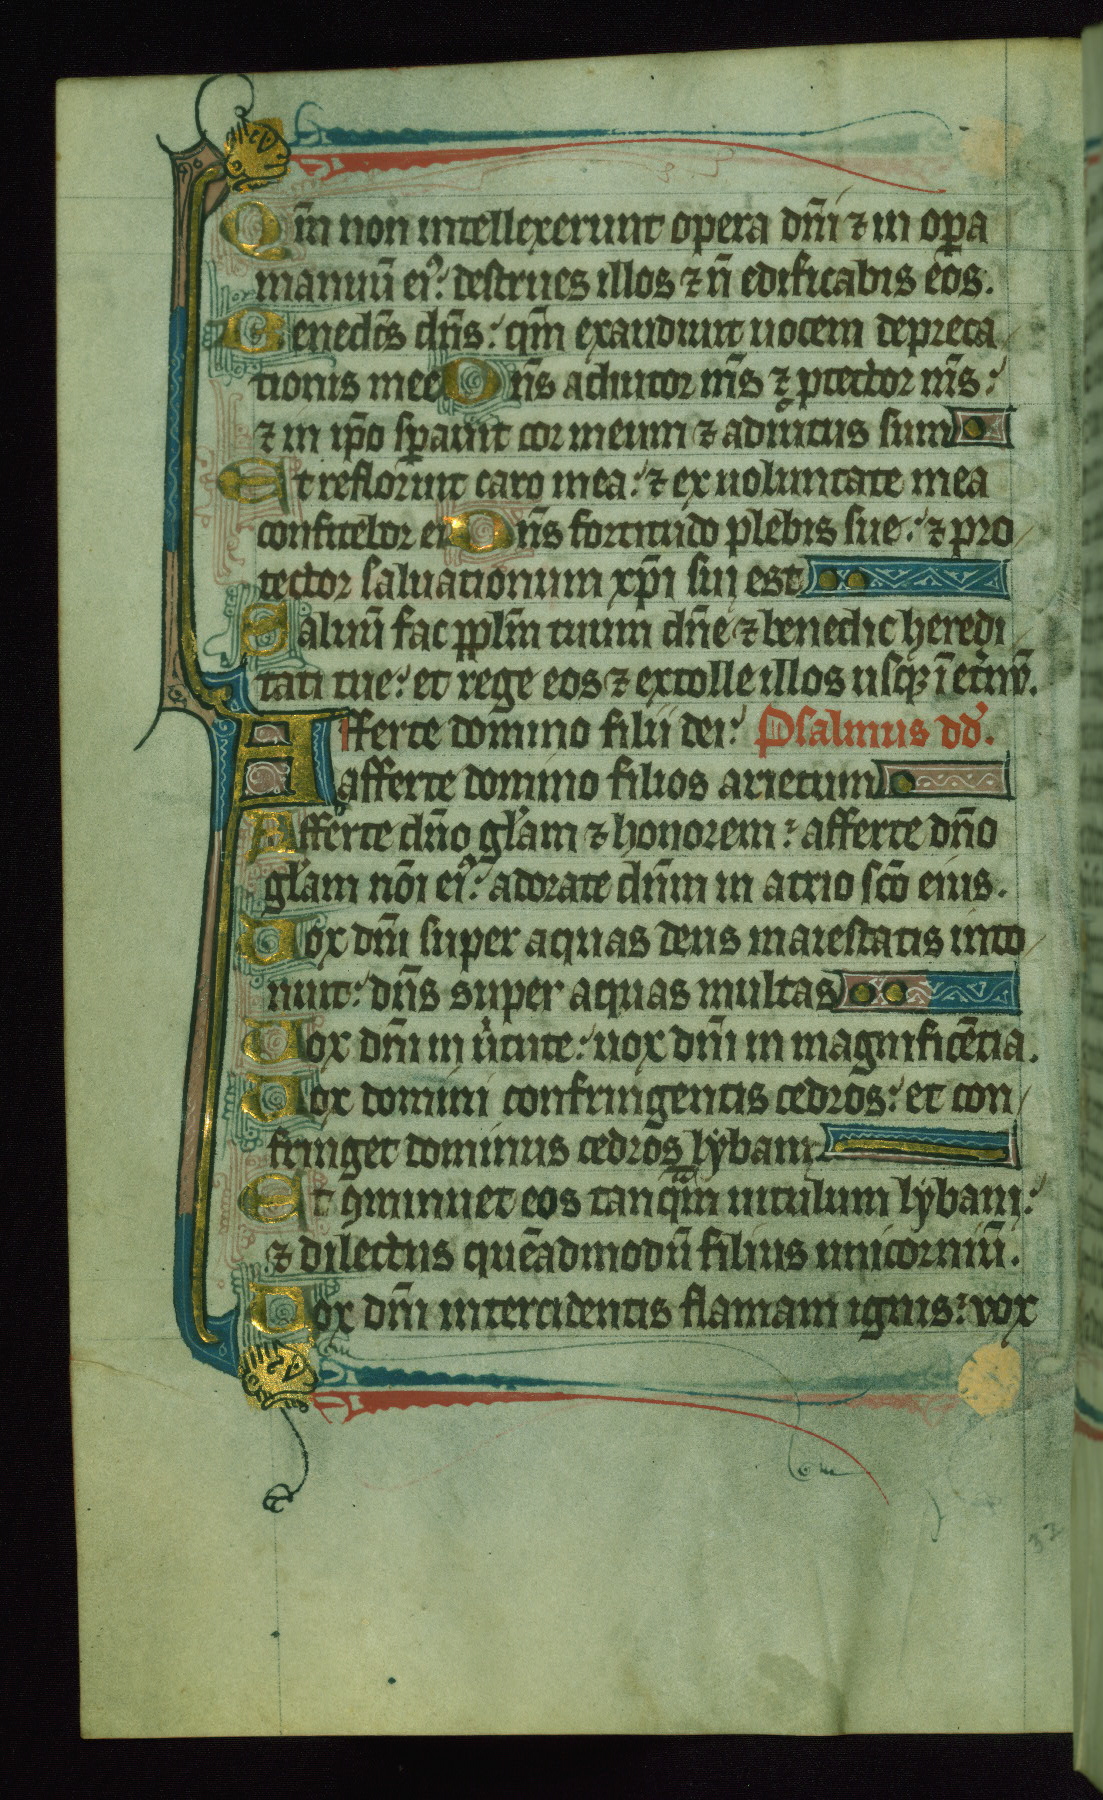 Qm̄ non intellexerunt opera dn̄i ⁊ in oꝑa
manuū eiꝰ: destrues illos ⁊ n̄ edificabis eos.
Benedc̄s dn̄s: qm̄ exaudiuit uocem depreca
tionis mee Dn̄s adiutor ms̄ ⁊ ꝓtector ms̄:
⁊ in ip̄o sꝑauit cor meum ⁊ adiutus sum
Et refloruit caro mea: ⁊ ex uoluntate mea
confitebor ei Dn̄s fortitudo plebis sue: ⁊ pro
tector saluationum xp̄i sui est
Saluū fac pplm̄ tuum dn̄e ⁊ benedic heredi
tati tue: et rege eos ⁊ extolle illos usqꝫ ī et̄nū.
Afferte domino filii dei: Psalmus dd̄.
afferte domino filios arietum
Afferte dn̄o gl̄am ⁊ honorem: afferte dn̄o
gl̄am nōi eiꝰ: adorate dn̄m in atrio sc̄o eius.
Uox dn̄i super aquas deus maiestatis into
nuit: dn̄s super aquas multas
Uox dn̄i in ūtute: uox dn̄i in magnificētia.
Uox domini confringentis cedros: et con
fringet dominus cedros lybani
Et ꝯminuet eos tanqm̄ uitulum lybani:
⁊ dilectus quēadmodū filius unicorniū.
Uox dn̄i intercidentis flamam ignis: vox
32